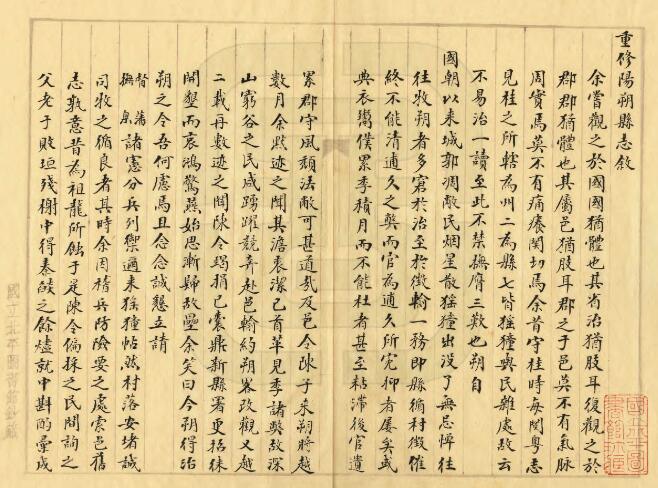 重修陽朔縣志敘
余嘗觀之於國國猶體也其省治猶股耳復觀之於
郡郡猶體也其屬邑猶肢耳郡之于邑莫不有氣脉
周貫焉莫不有痛癢関切焉余昔守桂時每閱粵志
見桂之所轄為州二為縣七皆猺獞與民雜處故云
不易治一讀至此不禁撫膺三歎也朔自
國朝以来城郭凋敝民烟星散猺獞出没了無忌憚往
往牧朔者多窘於治至於徵輸一務即縣循村徵催
終不能清逋久之獘而官為逋久所宄抑者屢矣或
典衣鬻僕累季積月而不能杜者甚至粘滯後官遺
累郡守風頹法敝可甚道㢤及邑令陳子来朔時越
數月余默迹之聞其澹裏潔已首革見季諸獘故深
山窮谷之民咸踴躍競奔赴邑輸約朔峯改觀又越
二載再数迹之聞陳令竭捐已囊鼎新縣署更招徠
開墾而哀鴻驚燕始思漸歸故壘余笑曰今朔得治
朔之令吾何慮焉且念念誠懇立請
督撫藩臬諸憲分兵列禦邇来猺獞帖然村落安堵誠
司牧之循良者其時余因稽兵防險要之處索邑舊
志敦意昔為祖龍所蝕于是陳令偏採之民間詢之
父老于敗垣殘榭中得秦燄之餘燼就中斟酌彙成
國立北平圖書館鈔藏